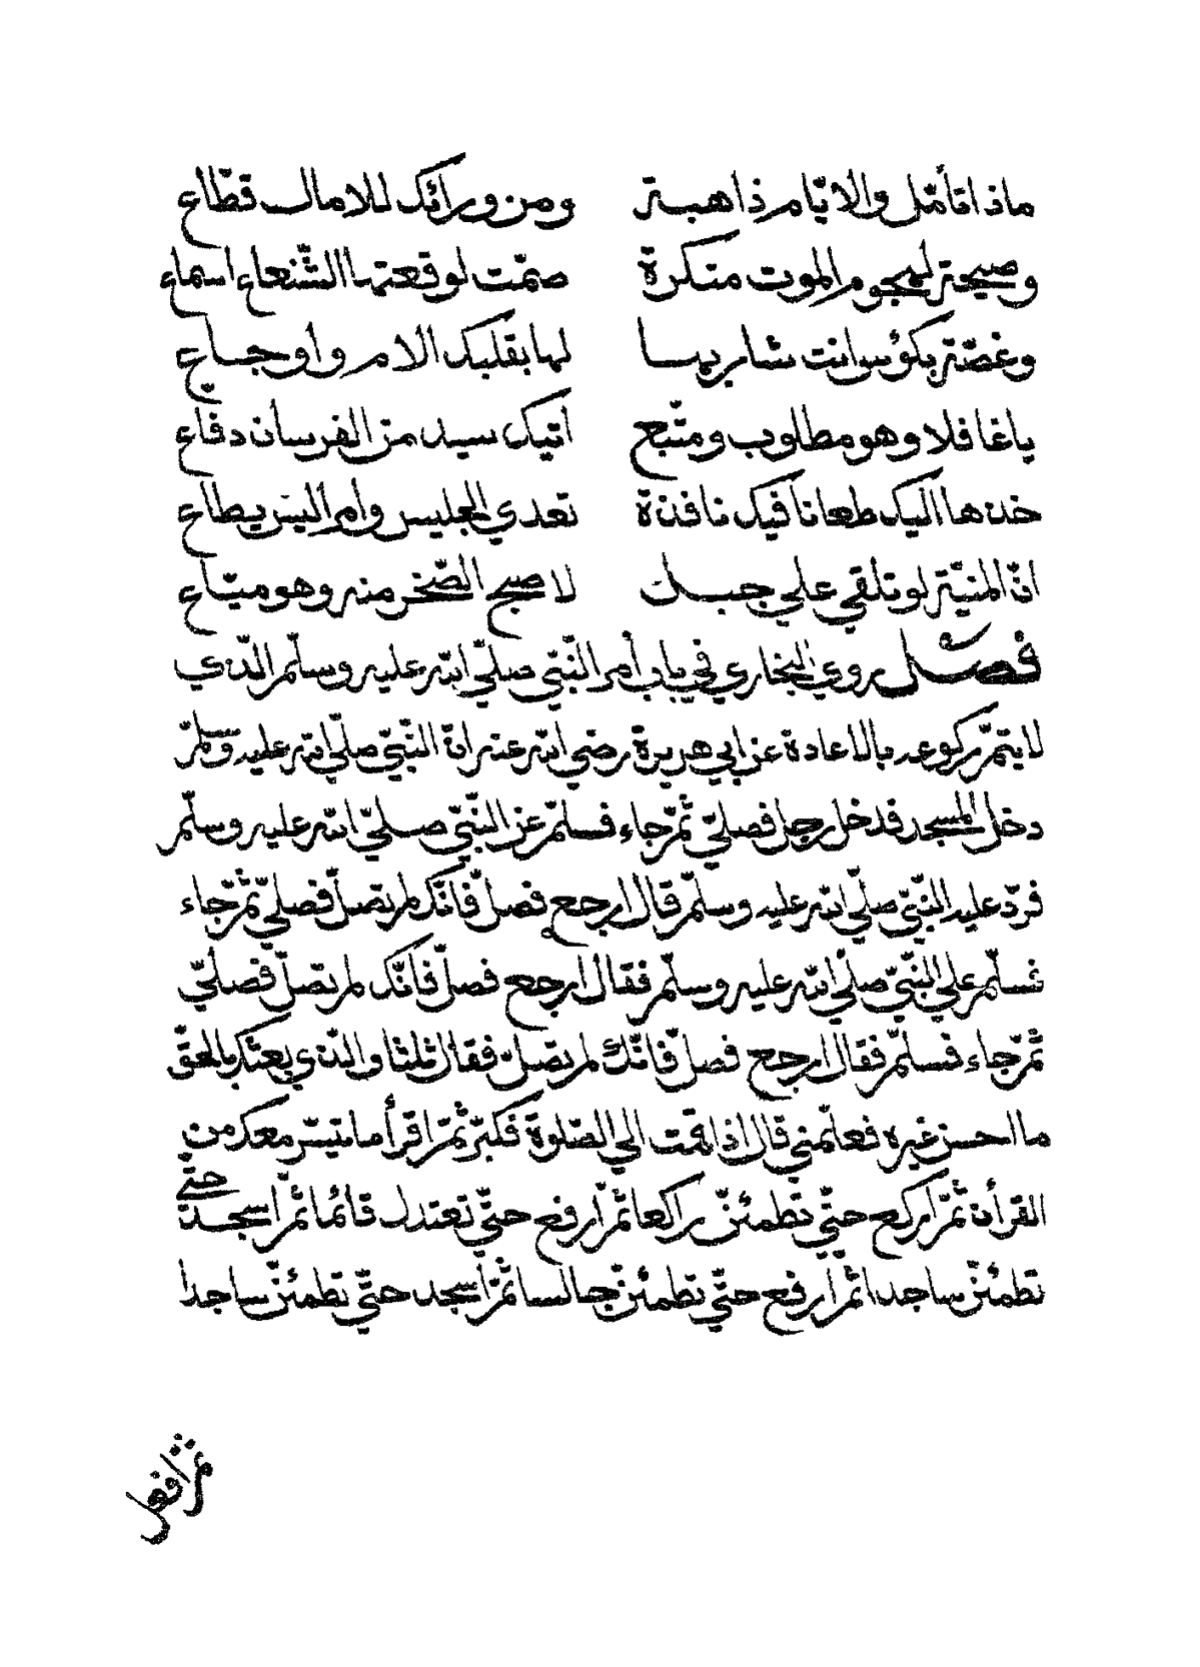 ماذا تأمّل والايّام ذاهبة ومن ورائك للامال قطّاع
وصيحة لهجوم الموت منكرة صمّت لوقعتها الشّنعاء اسماع
وغصّة بكؤس انت شاربها لها بقلبك الام واوجاع
ياغافلا وهو مطلوب ومتّبع اتيك سيد من الفرسان دفاع
خذها اليك طعانا فيك نافذة تعدي الجليس وامر ليس يطاع
انّ المنيّة لو تلقي علي جبل لاصبح الصّخر منه وهو ميّاع
فصل روي البخاري في باب أمر النّبيّ صلّي الله عليه وسلّم الّذي
لا يتمّ ركوعه بالاعادة عن ابي هريرة رضي الله عنه انّ النّبيّ صلّي الله عليه وسلّم
دخل المسجد فدخل رجل فصلّي ثمّ جاء فسلّم عن النّبيّ صلّي الله عليه وسلّم
فردّ عليه النّبيّ صلّي الله عليه وسلّم قال ارجع فصلّ فانّك لم تصلّ فصلّي ثمّ جاء
فسلّم علي النّبيّ صلّي الله عليه وسلّم فقال ارجع فصلّ فانّك لم تصلّ فصلّي
ثمّ جاء فسلّم فقال ارجع فصلّ فانّك لم تصلّ فقال ثلثا والّذي بعثك بالحقّ
ما احسن غيره فعلّمني قال اذا قمت الي الصّلوة فكبّر ثمّ اقرأ ما تيسّر معك من
القرأن ثمّ اركع حتّي تطمئنّ راكعا ثمّ ارفع حتّي تعتدل قائما ثمّ اسجد حتّي
تطمئنّ ساجدا ثمّ ارفع حتّي تطمئنّ جالسا ثمّ اسجد حتّي تطمئنّ ساجدا
ثمّ افعل